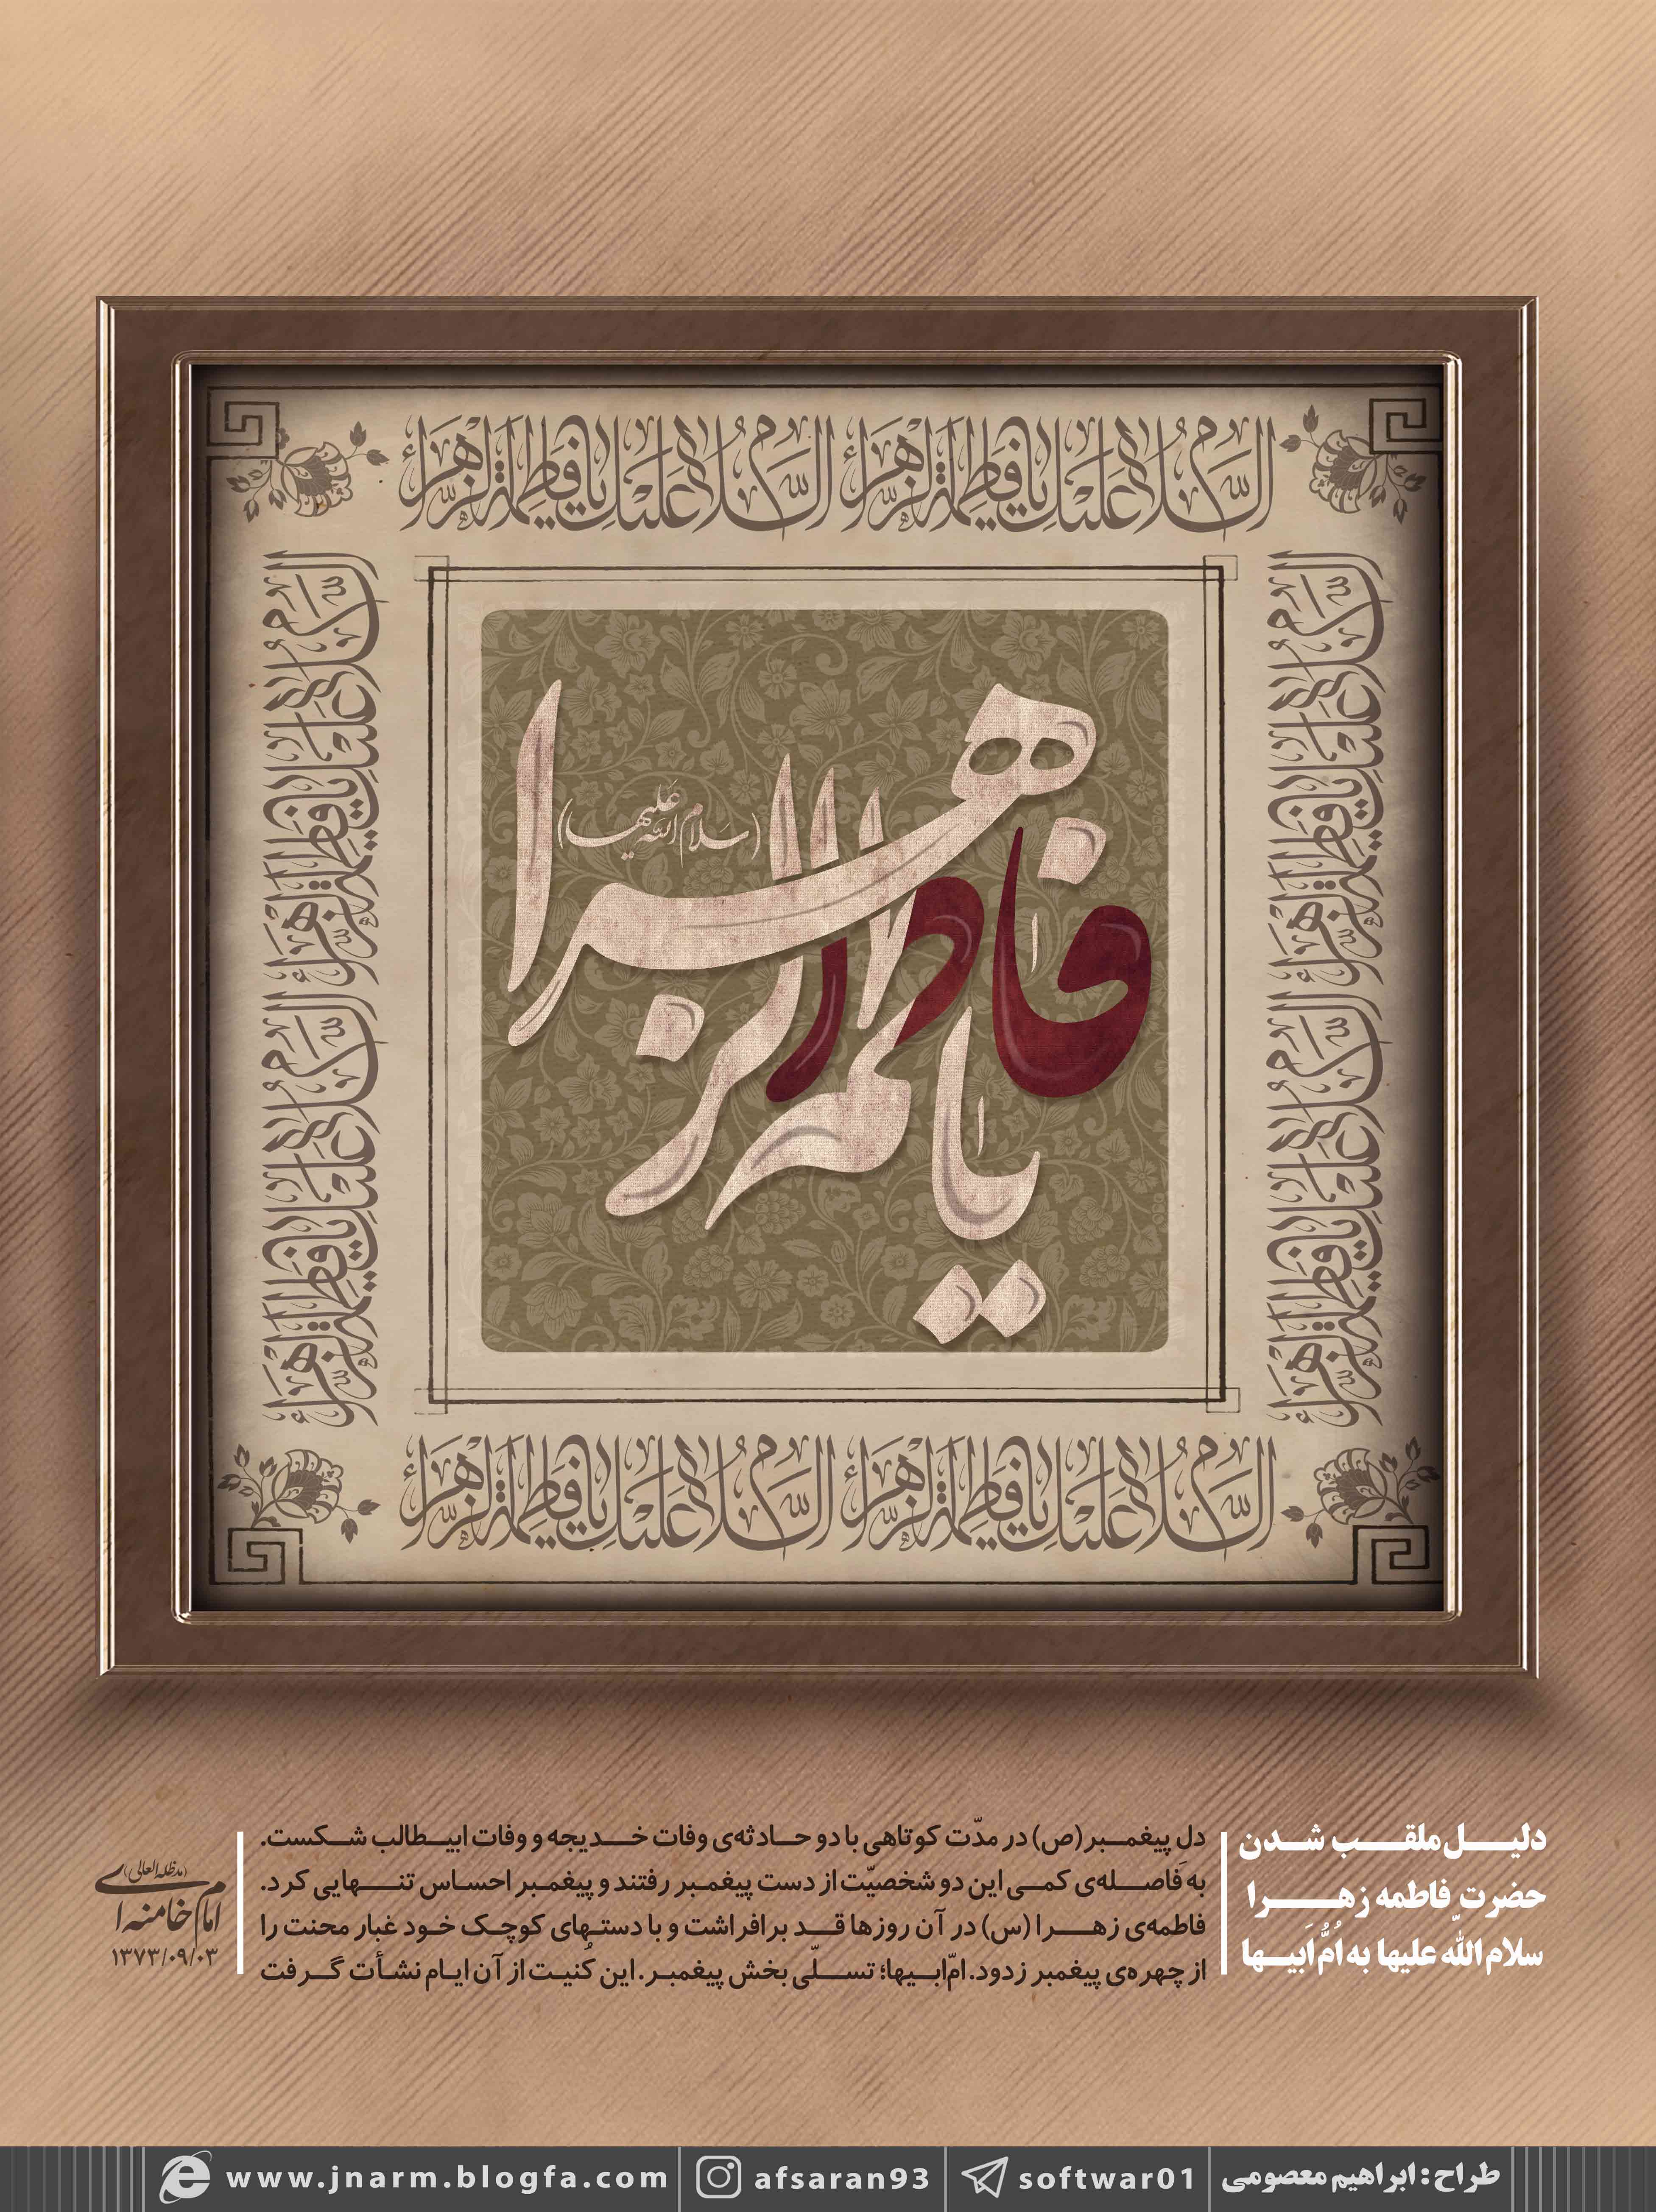 السلام علیک یا فاطمة الزهراء السلام علیک یا فاطمة الزهراء
السلام علیک یا فاطمة الزهراء السلام علیک یا فاطمة الزهراء
السلام علیک یا فاطمة الزهراء السلام علیک یا فاطمة الزهراء
یا فاطمه الزهرا
(سلام الله علیها)
السلام علیک یا فاطمة الزهراء السلام علیک یا فاطمة الزهراء
دلیل ملقب شدن
حضرت فاطمه زهرا
سلام اللّه علیها به اُمُّ اَبیها
دل پیغمبر(ص) در مدّت کوتاهی با دو حادثه‌ی وفات خدیجه و وفات ابیطالب شکست.
به فاصله‌ی کمی این دو شخصیّت از دست پیغمبر رفتند و پیغمبر احساس تنهایی کرد.
فاطمه‌ی زهرا (س) در آن روزها قد برافراشت و با دستهای کوچک خود غبار محنت را
از چهره‌ی پیغمبر زدود. امّ‌ابیها؛ تسلّی بخش پیغمبر. این کُنیت از آن ایام نشأت گرفت
(مدظله العالی)
امام خامنه‌ای
۱۳۷۳/۰۹/۰۳
طراح: ابراهیم معصومی
softwar01
afsaran93
www.jnarm.blogfa.com